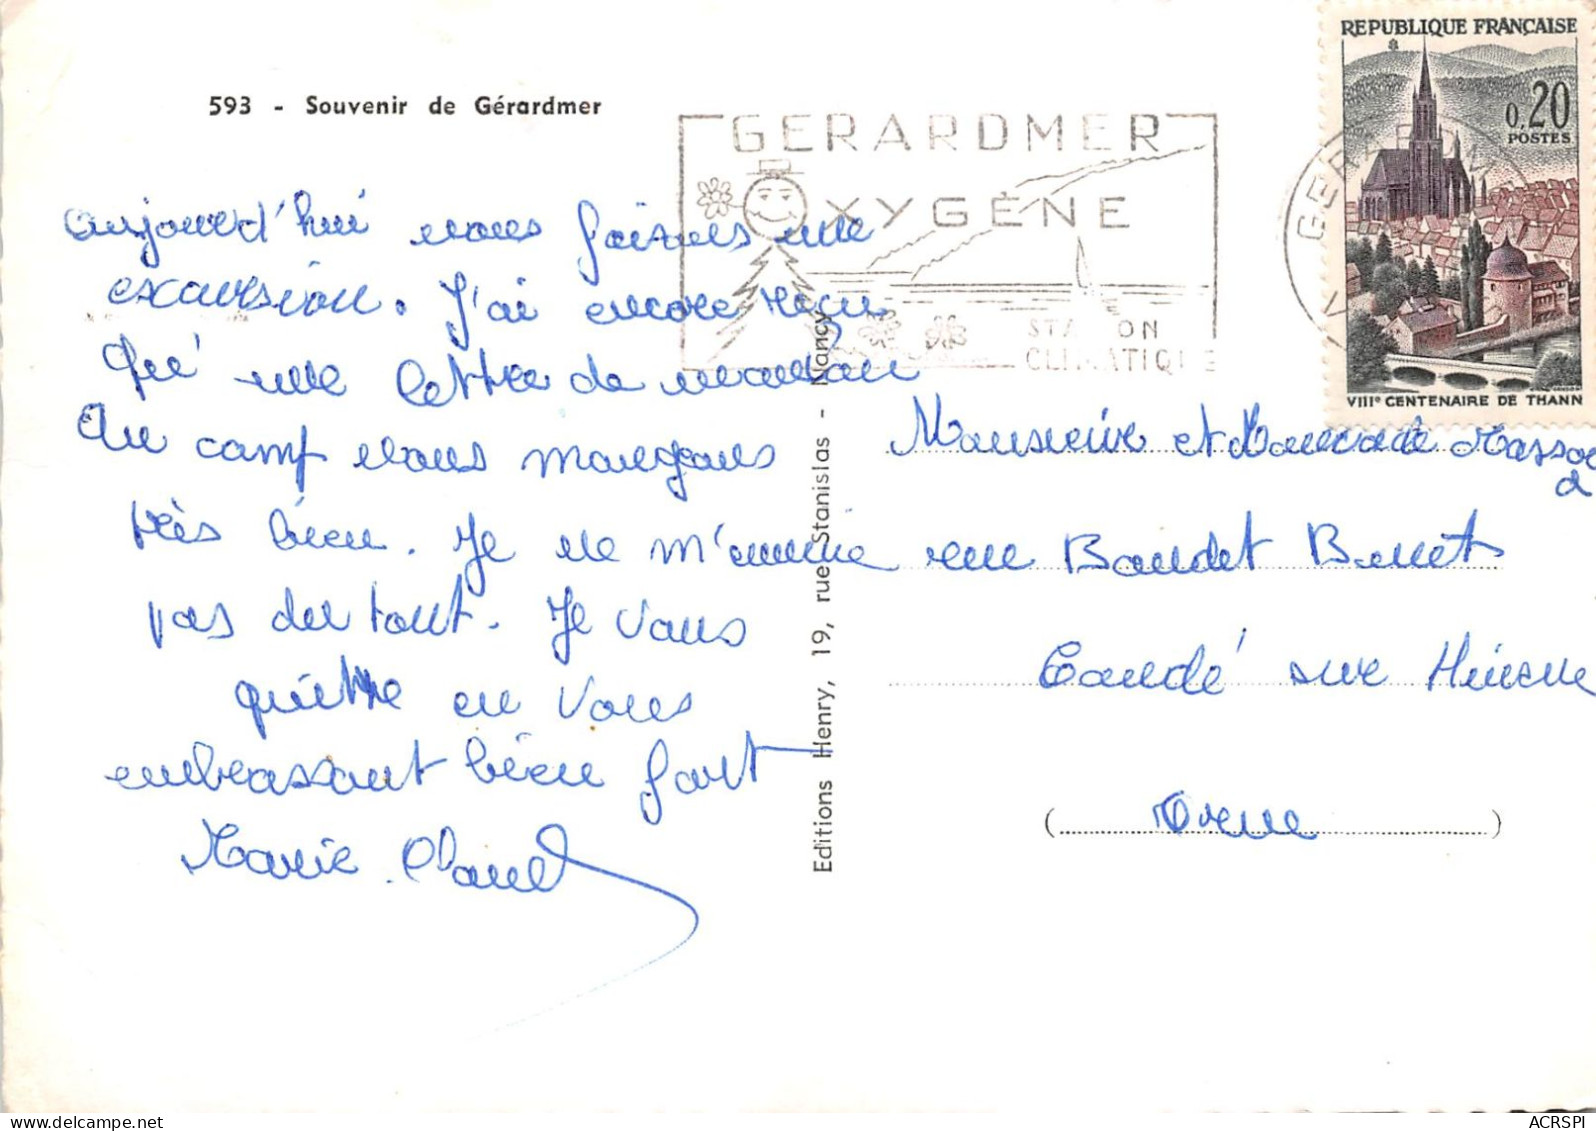 593 - Souvenir de Gérardmer
GERARDMER
OXYGÈNE
STATION
CLIMATIQUE
REPUBLIQUE FRANÇAISE
0,20
POSTES
VIIIe CENTENAIRE DE THANN
aujourd'hui nous faisons une
excursion. J'ai encore reçu
qu'une lettre de maman
Au camp nous mangeons
très bien. Je ne m'ennuie
pas du tout. Je vous
quitte en vous
embrassant bien fort
Marie.Claud
Editions Henry, 19, rue Stanislas - Nancy
Monsieur et Madame
rue
Candé sur
( Orne )
ACRSPI